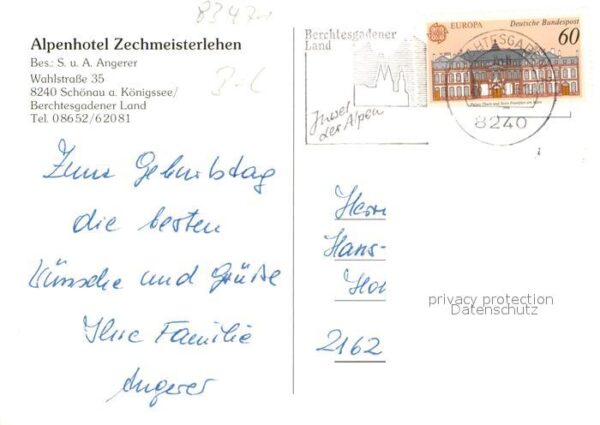 8347r
Alpenhotel Zechmeisterlehen
Bes.: S. u. A. Angerer
Wahlstraße 35
8240 Schönau a. Königssee/
Berchtesgadener Land
Tel. 08652/62081
Zum Geburtstag
die besten
Wünsche und Grüße
Ihre Familie
Angerer
Berchtesgadener
Land
Insel
der Alpen
EUROPA Deutsche Bundespost
60
8240
Herrn
Hans-
2162
privacy protection
Datenschutz